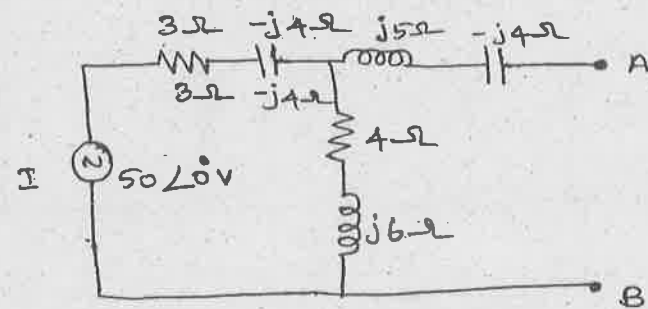 3Ω -j4Ω j5Ω -j4Ω
3Ω -j4Ω
A
4Ω
I 50∠0°V
j6Ω
B